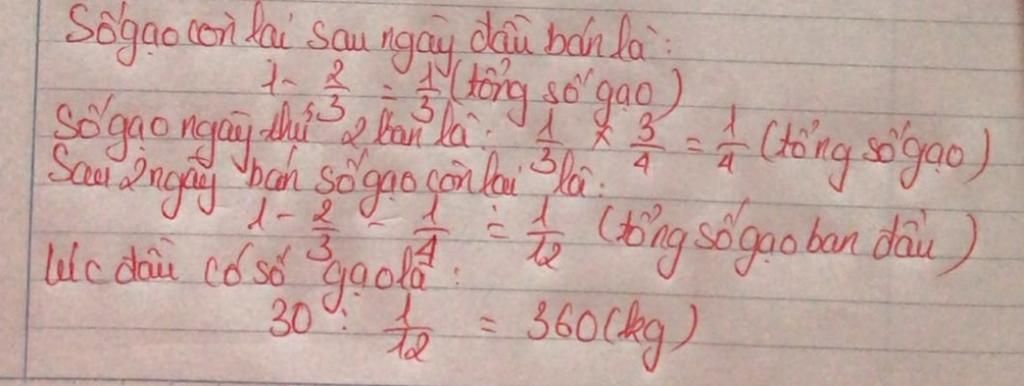 Số gạo còn lại sau ngày đầu bán là:
1 - 2/3 = 1/3 (tổng số gạo)
Số gạo ngày thứ 2 bán là: 1/3 × 3/4 = 1/4 (tổng số gạo)
Sau 2 ngày bán số gạo còn lại là:
1 - 2/3 - 1/4 = 1/12 (tổng số gạo ban đầu)
Lúc đầu có số gạo là:
30 : 1/12 = 360 (kg)